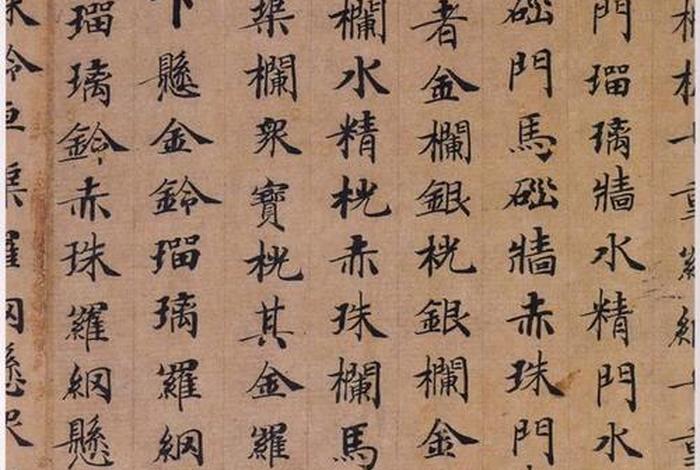 門瑠璃牆水精門水
碯門馬碯牆赤珠門
者金欄銀桄銀欄金
欄水精桄赤珠欄馬
渠欄衆寶桄其金羅
下懸金鈴瑠璃羅網
瑠璃鈴赤珠羅網懸
珠鈴車渠羅網懸衆